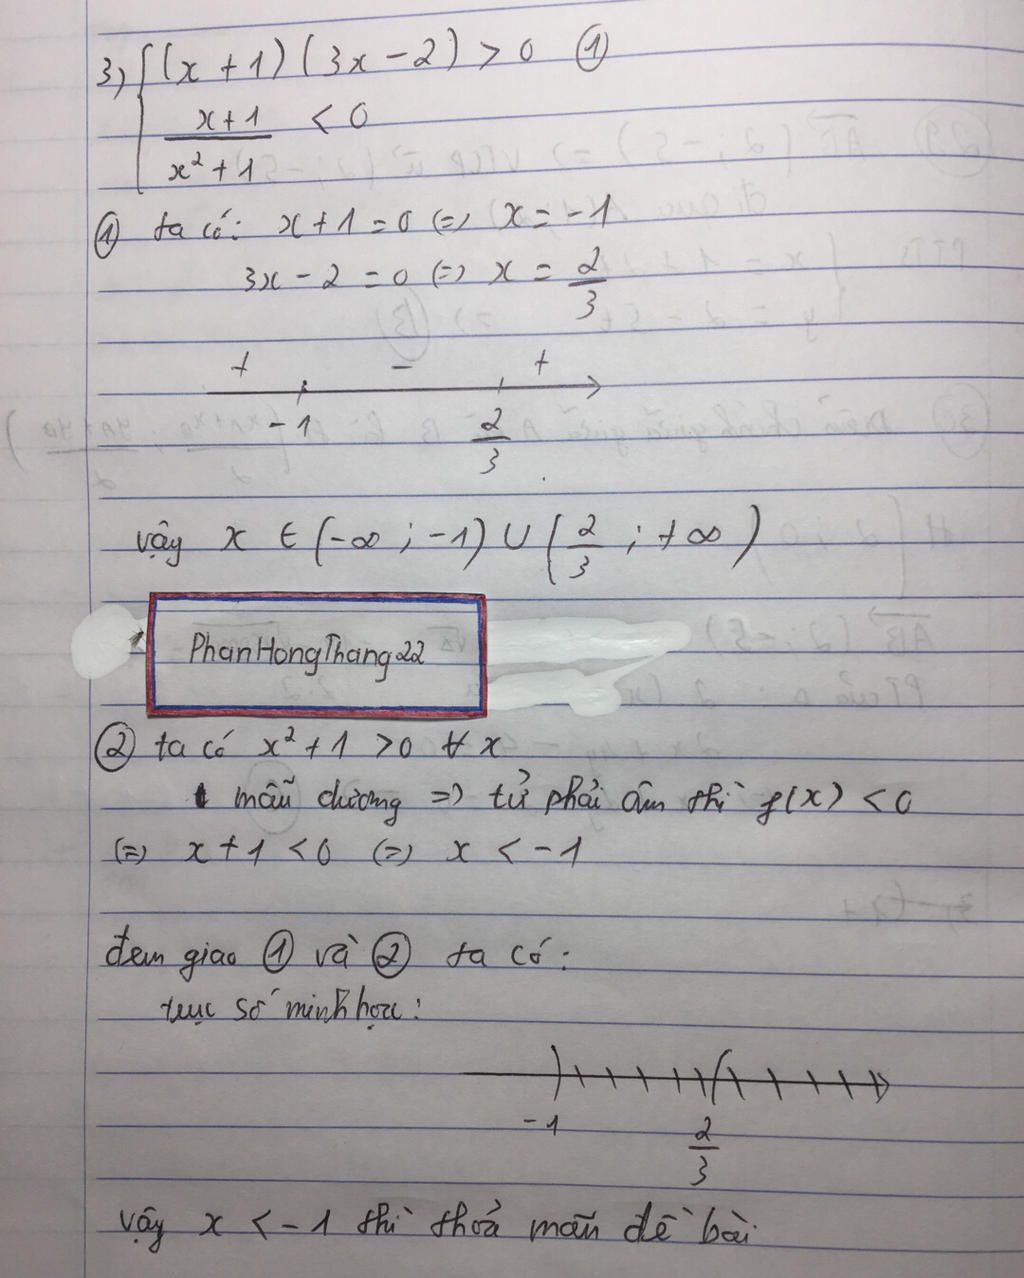 3) { (x + 1) (3x - 2) > 0 ①
x+1 / x² + 1 < 0
① ta có: x + 1 = 0 (=) x = -1
3x - 2 = 0 (=) x = 2/3
+ - +
-1 2/3
vậy x ∈ (-∞ ; -1) ∪ (2/3 ; +∞)
PhanHongThang22
② ta có x² + 1 > 0 ∀ x
mẫu dương => tử phải âm thì f(x) < 0
(=) x + 1 < 0 (=) x < -1
đem giao ① và ② ta có:
trục số minh họa:
-1 2/3
vậy x < -1 thì thoả mãn đề bài